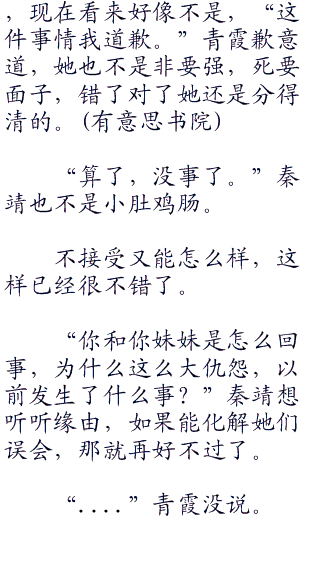 ，现在看来好像不是，“这
件事情我道歉。”青霞歉意
道，她也不是非要强，死要
面子，错了对了她还是分得
清的。(有意思书院)
“算了，没事了。”秦
靖也不是小肚鸡肠。
不接受又能怎么样，这
样已经很不错了。
“你和你妹妹是怎么回
事，为什么这么大仇怨，以
前发生了什么事？”秦靖想
听听缘由，如果能化解她们
误会，那就再好不过了。
“....”青霞没说。